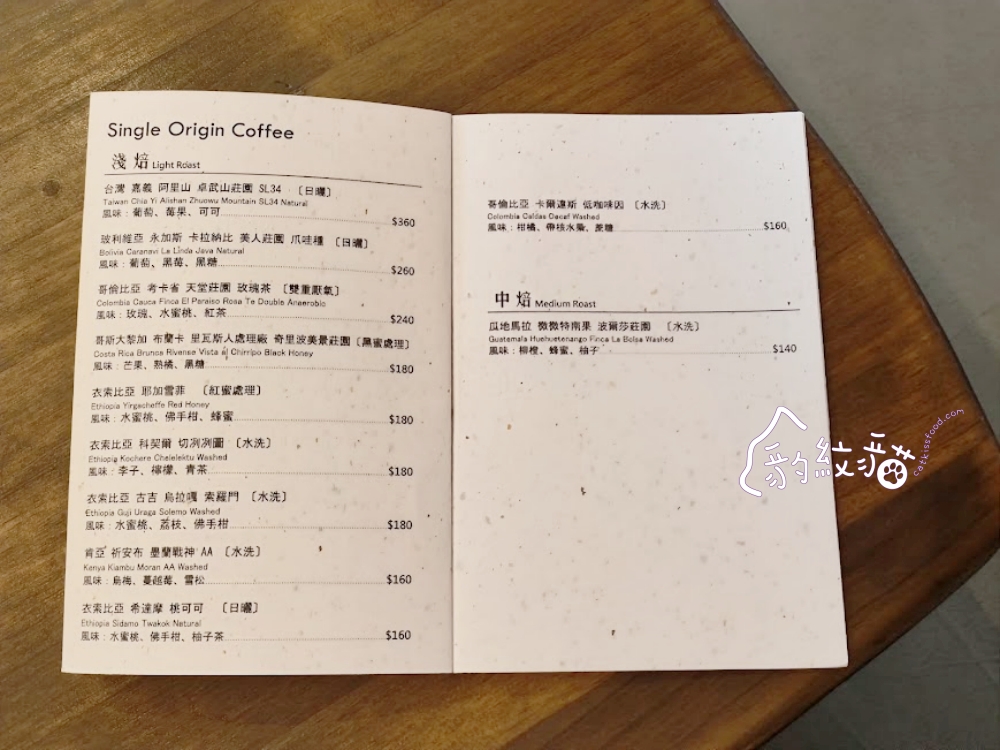 Single Origin Coffee
淺焙 Light Roast
台灣 嘉義 阿里山 卓武山莊園 SL34 〔日曬〕
Taiwan Chia Yi Alishan Zhuowu Mountain SL34 Natural
風味：葡萄、莓果、可可 $360
玻利維亞 永加斯 卡拉納比 美人莊園 爪哇種 〔日曬〕
Bolivia Caranavi La Linda Java Natural
風味：葡萄、黑莓、黑糖 $260
哥倫比亞 考卡省 天堂莊園 玫瑰茶 〔雙重厭氧〕
Colombia Cauca Finca El Paraiso Rosa Te Double Anaerobic
風味：玫瑰、水蜜桃、紅茶 $240
哥斯大黎加 布蘭卡 里瓦斯人處理廠 奇里波美景莊園〔黑蜜處理〕
Costa Rica Brunca Rivense Vista al Chirripo Black Honey
風味：芒果、熟橘、黑糖 $180
衣索比亞 耶加雪菲 〔紅蜜處理〕
Ethiopia Yirgacheffe Red Honey
風味：水蜜桃、佛手柑、蜂蜜 $180
衣索比亞 科契爾 切冽冽圖 〔水洗〕
Ethiopia Kochere Chelelektu Washed
風味：李子、檸檬、青茶 $180
衣索比亞 古吉 烏拉嘎 索羅門 〔水洗〕
Ethiopia Guji Uraga Solemo Washed
風味：水蜜桃、荔枝、佛手柑 $180
肯亞 祈安布 墨蘭戰神 AA 〔水洗〕
Kenya Kiambu Moran AA Washed
風味：烏梅、蔓越莓、雪松 $160
衣索比亞 希達摩 桃可可 〔日曬〕
Ethiopia Sidamo Twakok Natural
風味：水蜜桃、佛手柑、柚子茶 $160
哥倫比亞 卡爾達斯 低咖啡因 〔水洗〕
Colombia Caldas Decaf Washed
風味：柑橘、帶核水果、蔗糖 $160
中焙 Medium Roast
瓜地馬拉 薇薇特南果 波爾莎莊園 〔水洗〕
Guatemala Huehuetenango Finca La Bolsa Washed
風味：柳橙、蜂蜜、柚子 $140
豹紋貓
catkissfood.com